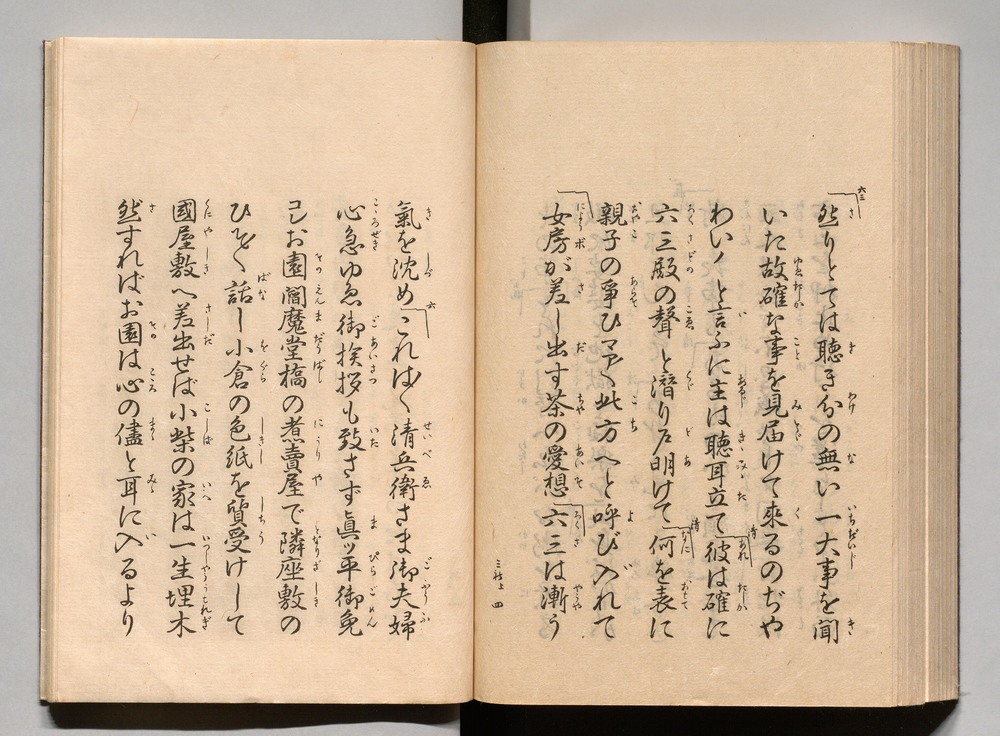 然りとては聴き分の無い一大事を聞
いた故確な事を見届けて來るのぢや
わいノと言ふに主は聴耳立て彼は確に
六三殿の聲と潛り戸明けて何を表に
親子の爭ひマア〳〵此方へと呼び入れて
女房が差し出す茶の愛想六三は漸う
三社上 四
氣を沈めこれは〳〵清兵衛さま御夫婦
心急ゆゑ御挨拶も致さず眞ッ平御免
コレお園閻魔堂橋の煮賣屋で隣座敷の
ひそ〳〵話し小倉の色紙を質受けして
國屋敷へ差出せば小柴の家は一生埋木
然すればお園は心の儘と耳に入るより